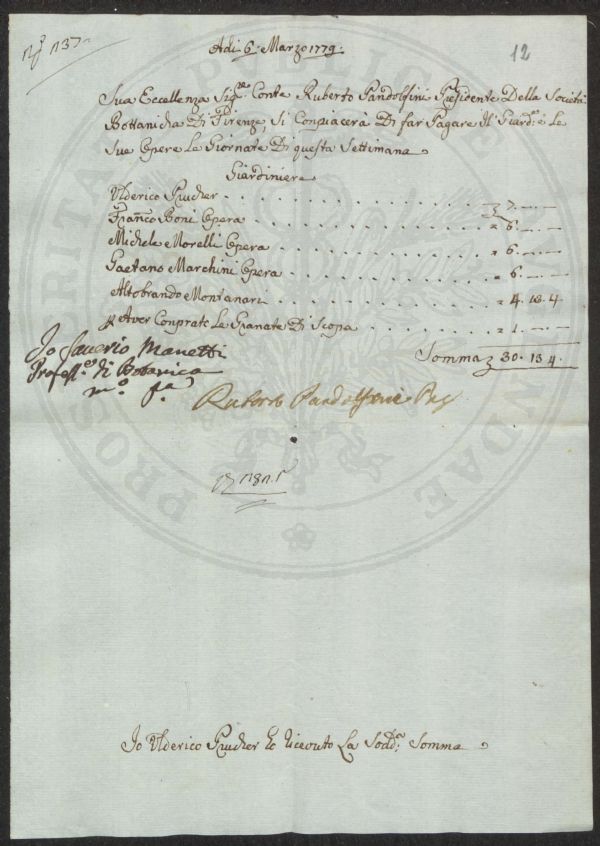 Adi 6: Marzo 1779:
12
Sua Eccellenza Sig.re Conte Ruberto Pandolfini Presidente Della Società
Bottanicha Di Firenze, Si Conpiacerà Di far Pagare Il Giard:e e Le
Sue Opere Le Giornate Di questa Settimana
Giardiniere
Ulderico 7. — . —
Franco Boni Opera 6. — . —
Michele Morelli Opera 6. — . —
Gaetano Marchini Opera 6. — . —
Altobrando Montanari 4. 13. 4
Aver Conprato Le Granate Di Scopa 1. — . —
Somma 30. 13 4.
Io Saverio Manetti
Profess.e di Botanica
m.o p.a
Ruberto Pandolfini
Io Ulderico ho riceuto La Sodd.a Somma
PROSPERITATI PUBLICAE AUGENDAE